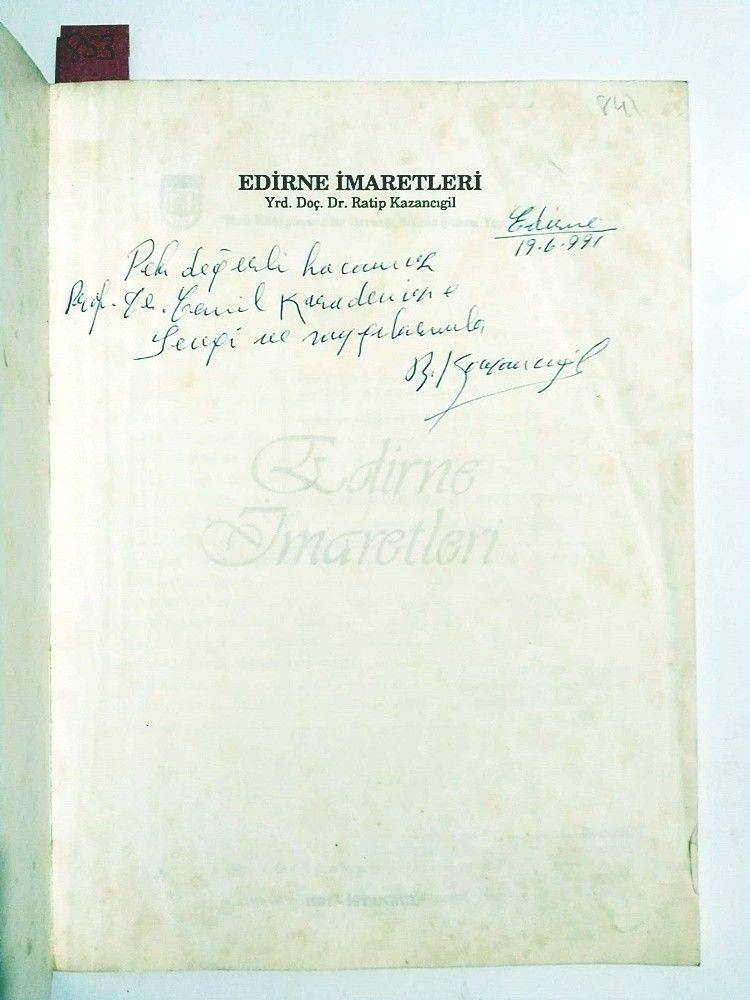 853
841
EDİRNE İMARETLERİ
Yrd. Doç. Dr. Ratip Kazancıgil
Edirne
19.6.991
Pek değerli hocamız
Prof. Dr. Cemil Karadeniz'e
Sevgi ve saygılarımla
R. Kazancıgil
Edirne
İmaretleri